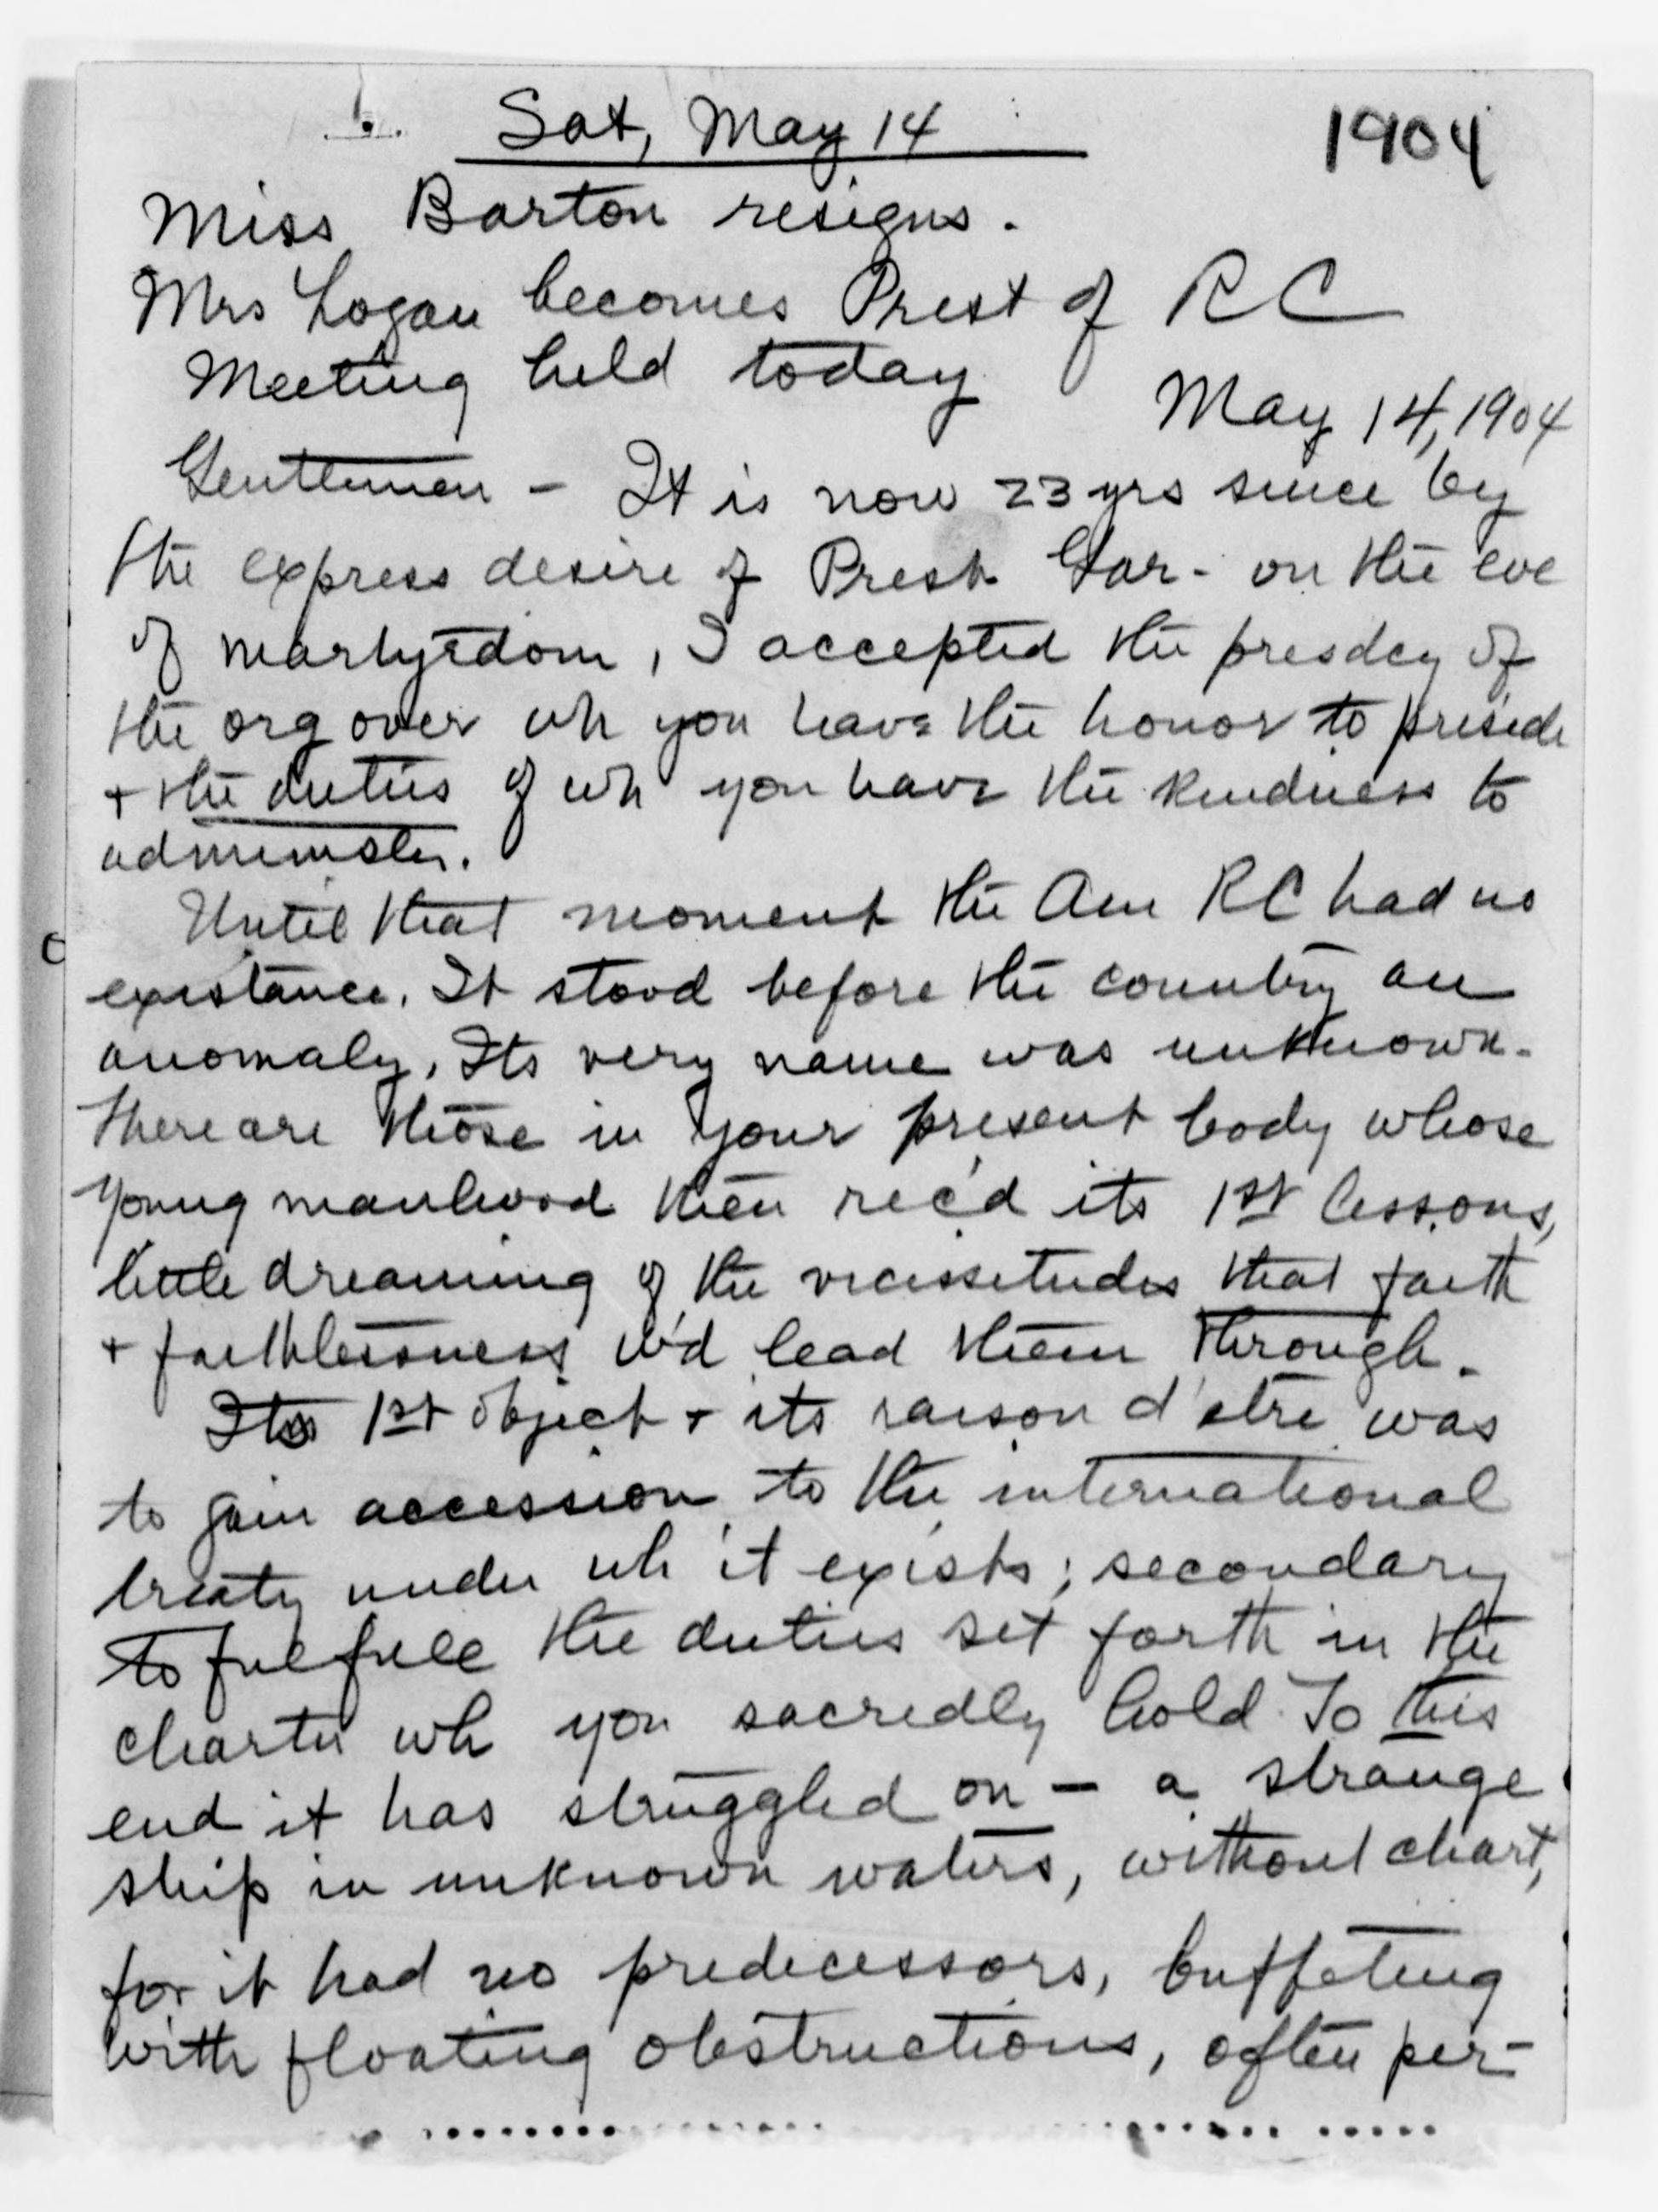 Sat, May 14
1904
Miss Barton resigns.
Mrs Logan becomes Prest of RC
Meeting held today
May 14, 1904
Gentlemen - It is now 23 yrs since by
the express desire of Prest Gar- on the eve
of martyrdom, I accepted the presdcy of
the org over wh you have the honor to preside
+ the duties of wh you have the kindness to
administer.
Until that moment the Am RC had no
existance. It stood before the country an
anomaly. Its very name was unknown.
There are those in your present body whose
young manhood then rec'd its 1st lessons,
little dreaming of the vicissitudes that faith
+ faithlessness w'd lead them through.
Its 1st object + its raison d'etre was
to gain accession to the international
treaty under wh it exists; secondary
to fulfill the duties set forth in the
charter wh you sacredly hold. To this
end it has struggled on - a strange
ship in unknown waters, without chart,
for it had no predecessors, buffeting
with floating obstructions, often per-